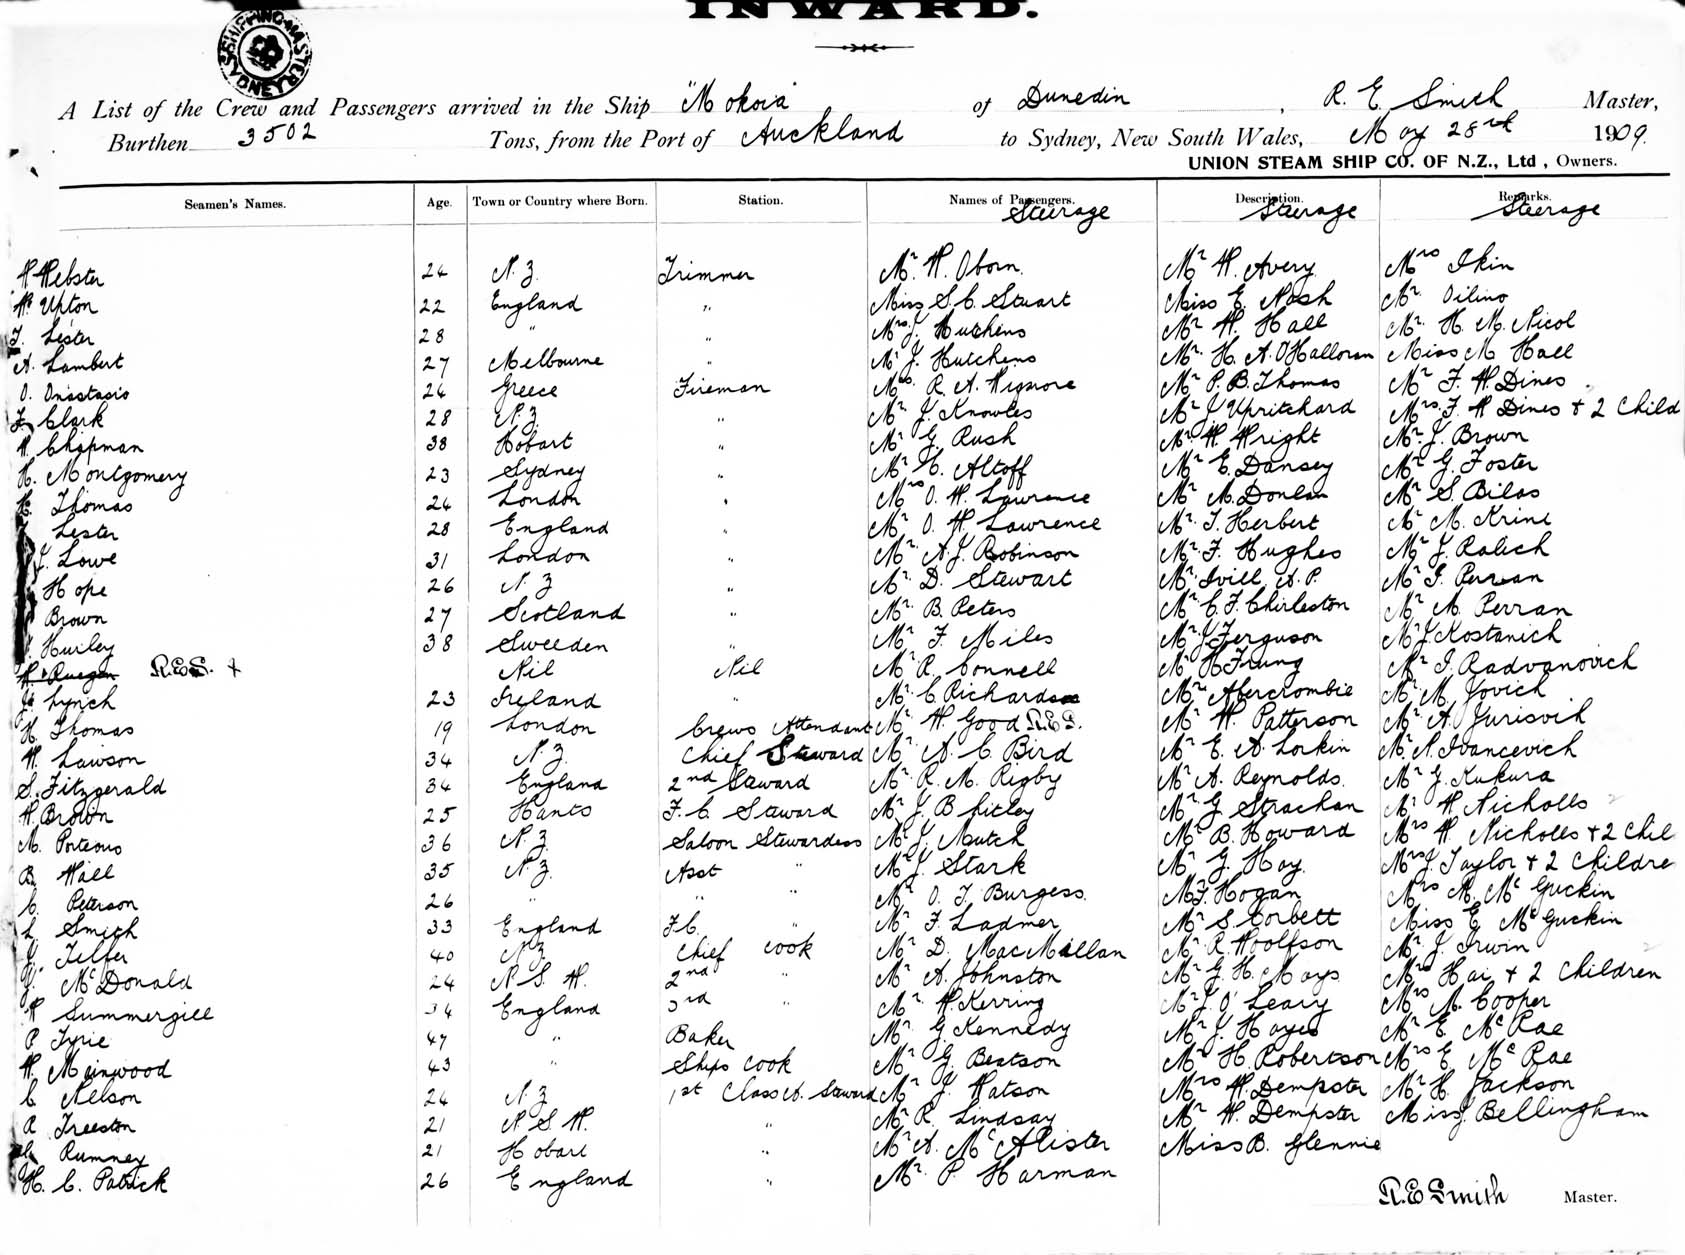 INWARD.
SHIPPING MASTER SYDNEY
A List of the Crew and Passengers arrived in the Ship "Mokoia" of Dunedin, R. E. Smith Master,
Burthen 3502 Tons, from the Port of Auckland to Sydney, New South Wales, May 28th 1909.
UNION STEAM SHIP CO. OF N.Z., Ltd, Owners.
Seamen's Names. Age. Town or Country where Born. Station. Names of Passengers. Description. Remarks.
Steerage Steerage Steerage
W Webster 24 N.Z. Trimmer Mr. W. Oborn. Mr W. Avery Mrs Ikin
Wm Upton 22 England " Miss S. C. Stuart Miss E. Nash Mr.
T. Lester 28 " " Mrs J. Hutchens Mr W. Hall Mr. H. M. Nicol
A. Lambert 27 Melbourne " Mr J. Hutchens Mr. H. A. O'Halloran Miss M Hall
O. Onastasis 24 Greece Fireman Mrs. R. A. Wignore Mr P. B. Thomas Mr F. W. Dines
F. Clark 28 N.Z. " Mr. J. Knowles Mr J. Upritchard Mrs. F. W Dines + 2 Child
W. Chapman 38 Hobart " Mr G. Rush Mr. W. Wright Mr. J. Brown
H. Montgomery 23 Sydney " Mr C. Altoff Mr E. Dansey Mr G. Foster
H. Thomas 24 London " Mrs O. W. Lawrence Mr M. Donlan Mr S. Bilas
Lester 28 England " Mr O. W. Lawrence Mr. T. Herbert Mr M.
J. Lowe 31 London " Mr. A. J. Robinson Mr. F. Hughes Mr J. Ralich
Hope 26 N.Z " Mr. D. Stewart Mr. A. P. Mr
Brown 27 Scotland " Mr. B. Peters Mr C. F. Chirleston Mr M. Perran
Hurley 38 Sweeden " Mr F. Miles Mr J Ferguson Mr J. Kostanich
R.E.S. + Nil Nil Mr R. Connell Mr Mr I. Radvanovich
J. Lynch 23 Ireland " Mr. C. Richards Mr Abercrombie Mr. M. Jovich
H. Thomas 19 London Crews Attendant Mr. W. Good R.E.S. Mr W. Patterson Mr A. Jurisvih
W. Lawson 34 N.Z. Chief Steward Mr A. C. Bird Mr E. A. Lorkin Mr. N. Ivancevich
S. Fitzgerald 34 England 2nd Steward Mr. R. M. Rigby Mr A. Reynolds. Mr G. Kukura
W. Brown 25 Hants F. C. Steward Mr J. B Mr G. Strachan Mr W. Nicholls
M. Porteous 36 N.Z. Saloon Stewardess Mr J. Mutch Mr B. Howard Mrs W. Nicholls + 2 Chil
B. Hall 35 N.Z. Asst " Mr J. Stark Mr G. Hay. Mrs J. Taylor + 2 Childre
C. Peterson 26 " " " Mr O. T. Burgess. Mr J. Hogan Mrs M. McGuckin
L Smith 33 England F.C. " Mr F. Ladmer Mr S. Corbett Miss E McGuckin
J. Telfer 40 N.Z Chief Cook Mr D. MacMillan Mr. R. Woolfson Mr. J. Irwin
J. McDonald 24 N.S.W. 2nd " Mr A. Johnston Mr G. H. Mays Mrs Hai + 2 Children
W Summergill 34 England 3rd " Mr. W. Kerring Mr J. O'Leary Mrs A. Cooper
P Tyrie 47 " Baker Mr. G. Kennedy Mr J. Hayes Mr E. McRae
W. Mainwood 43 " Ships Cook Mr G. Beatson Mr H. Robertson Mrs E McRae
C Nelson 24 N.Z 1st Class Ast. Steward Mr J. Watson Mrs W. Dempster Mr H. Jackson
R Treeston 21 N.S.W. " Mr R. Lindsay Mr W. Dempster Miss J. Bellingham
Rumney 21 Hobart " Mr A. McAlister Miss B. Glennie
H. C. Patrick 26 England " Mr. P. Harman
R.E Smith Master.